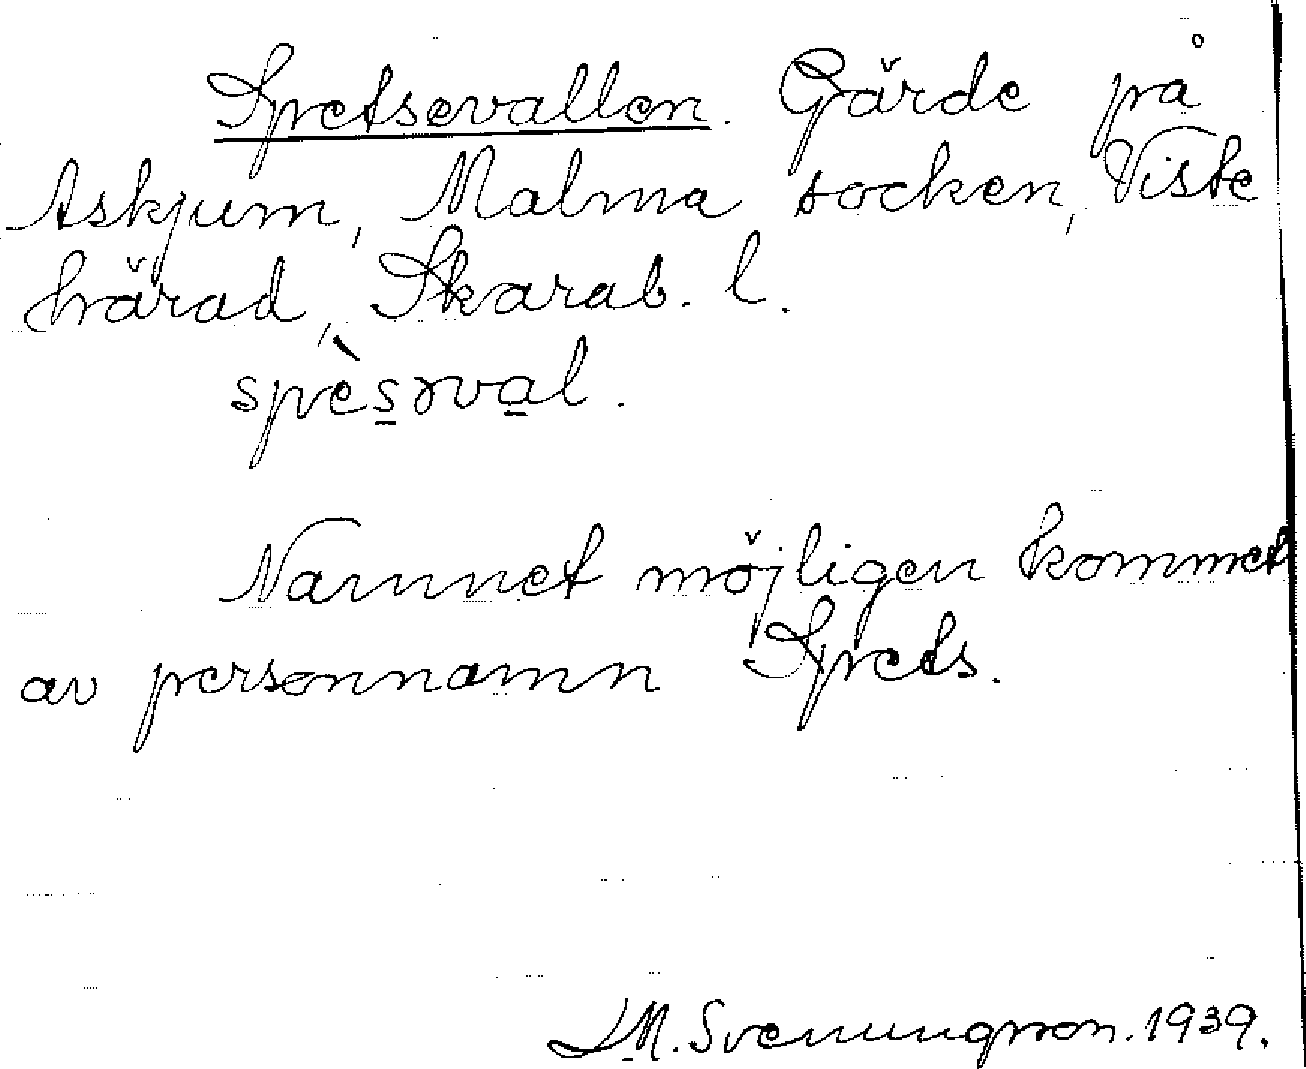 Spetsevallen. Gärde på
Askjum, Malma socken, Viste
härad, Skarab. l.
spèsəval.
Namnet möjligen kommet
av personnamn Spets.
I.M. Svenungsson. 1939.